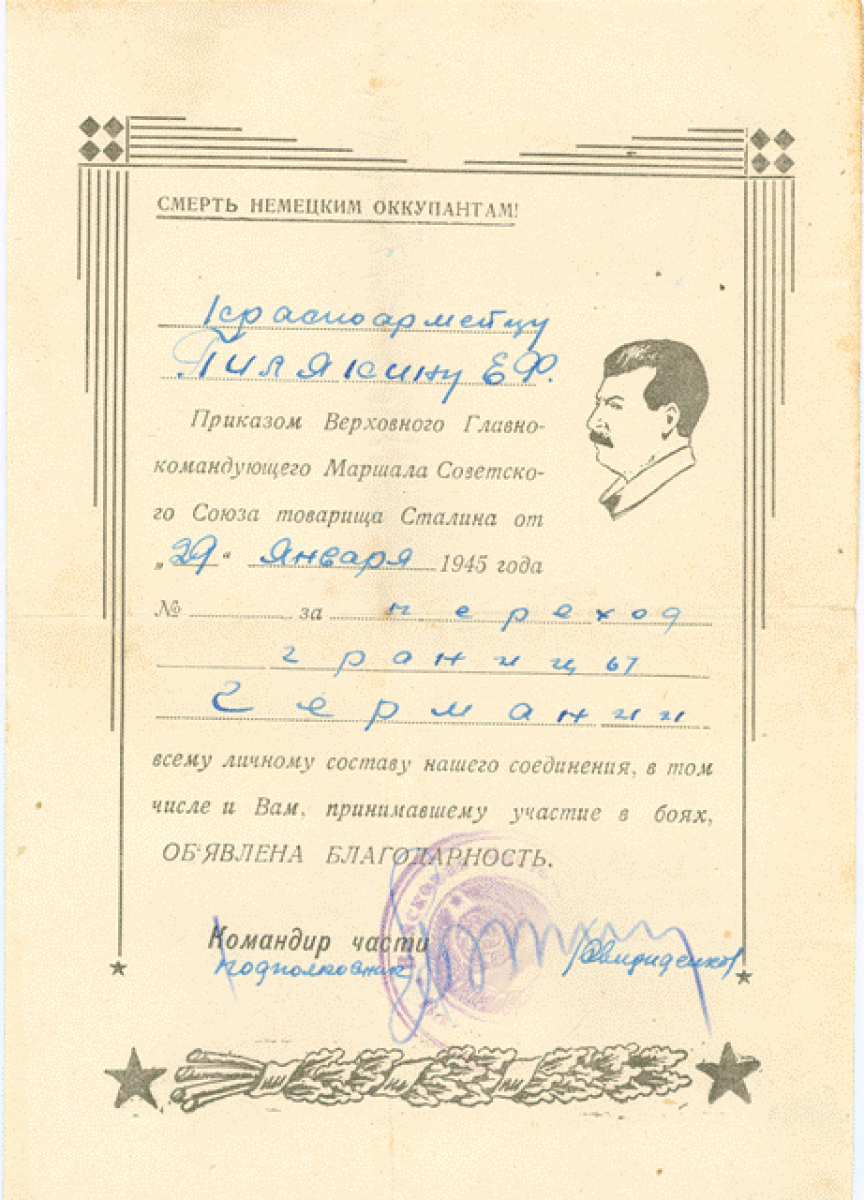 СМЕРТЬ НЕМЕЦКИМ ОККУПАНТАМ!
Красноармейцу
Пилякину Е Ф.
Приказом Верховного Главно-
командующего Маршала Советско-
го Союза товарища Сталина от
„29“ января 1945 года
№ за переход
границы
Германии
всему личному составу нашего соединения, в том
числе и Вам, принимавшему участие в боях,
ОБ'ЯВЛЕНА БЛАГОДАРНОСТЬ.
Командир части
подполковник